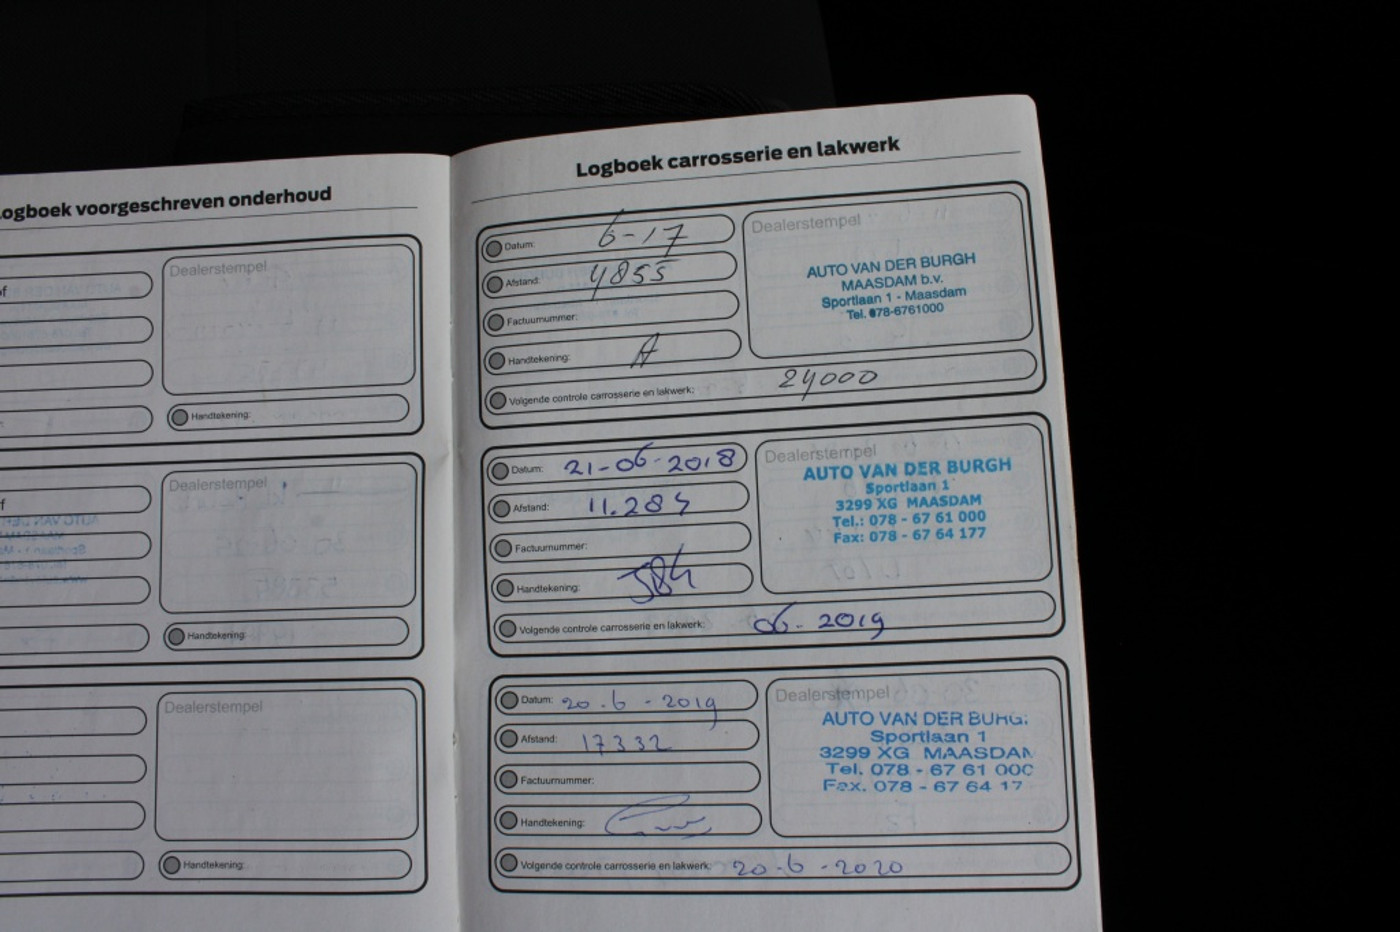 ogboek voorgeschreven onderhoud
f
Dealerstempel
Handtekening:
f
Dealerstempel
Handtekening:
Dealerstempel
Handtekening:
Logboek carrosserie en lakwerk
Datum: 6-17
Afstand: 4855
Factuurnummer:
Handtekening:
Volgende controle carrosserie en lakwerk: 24000
Dealerstempel
AUTO VAN DER BURGH
MAASDAM b.v.
Sportlaan 1 - Maasdam
Tel. 078-6761000
Datum: 21-06-2018
Afstand: 11.284
Factuurnummer:
Handtekening:
Volgende controle carrosserie en lakwerk: 06-2019
Dealerstempel
AUTO VAN DER BURGH
Sportlaan 1
3299 XG MAASDAM
Tel.: 078 - 67 61 000
Fax: 078 - 67 64 177
Datum: 20-6-2019
Afstand: 17332
Factuurnummer:
Handtekening:
Volgende controle carrosserie en lakwerk: 20-6-2020
Dealerstempel
AUTO VAN DER BURG
Sportlaan 1
3299 XG MAASDAM
Tel. 078 - 67 61 000
Fax. 078 - 67 64 17